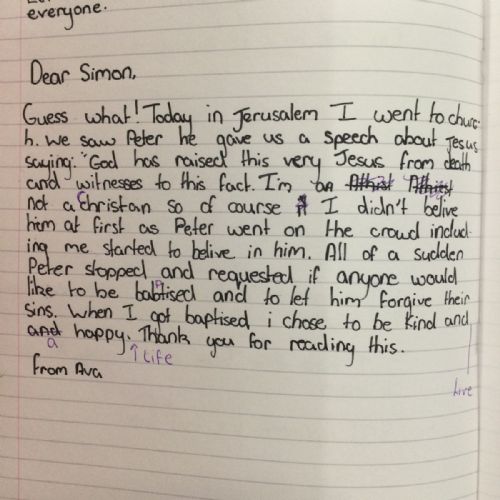 everyone.
Dear Simon,
Guess what! Today in Jerusalem I went to churc-
h. We saw Peter he gave us a speech about Jesus
saying: "God has raised this very Jesus from death
and witnesses to this fact. I'm an Athist Athiest
not a christan so of course I I didn't belive
him at first as Peter went on the crowd includ-
ing me started to belive in him. All of a sudden
Peter stopped and requested if anyone would
like to be babtised and to let him forgive their
sins. When I got baptised i chose to be kind and
and happy. Thank you for reading this.
a ↑ Life
from Ava
live